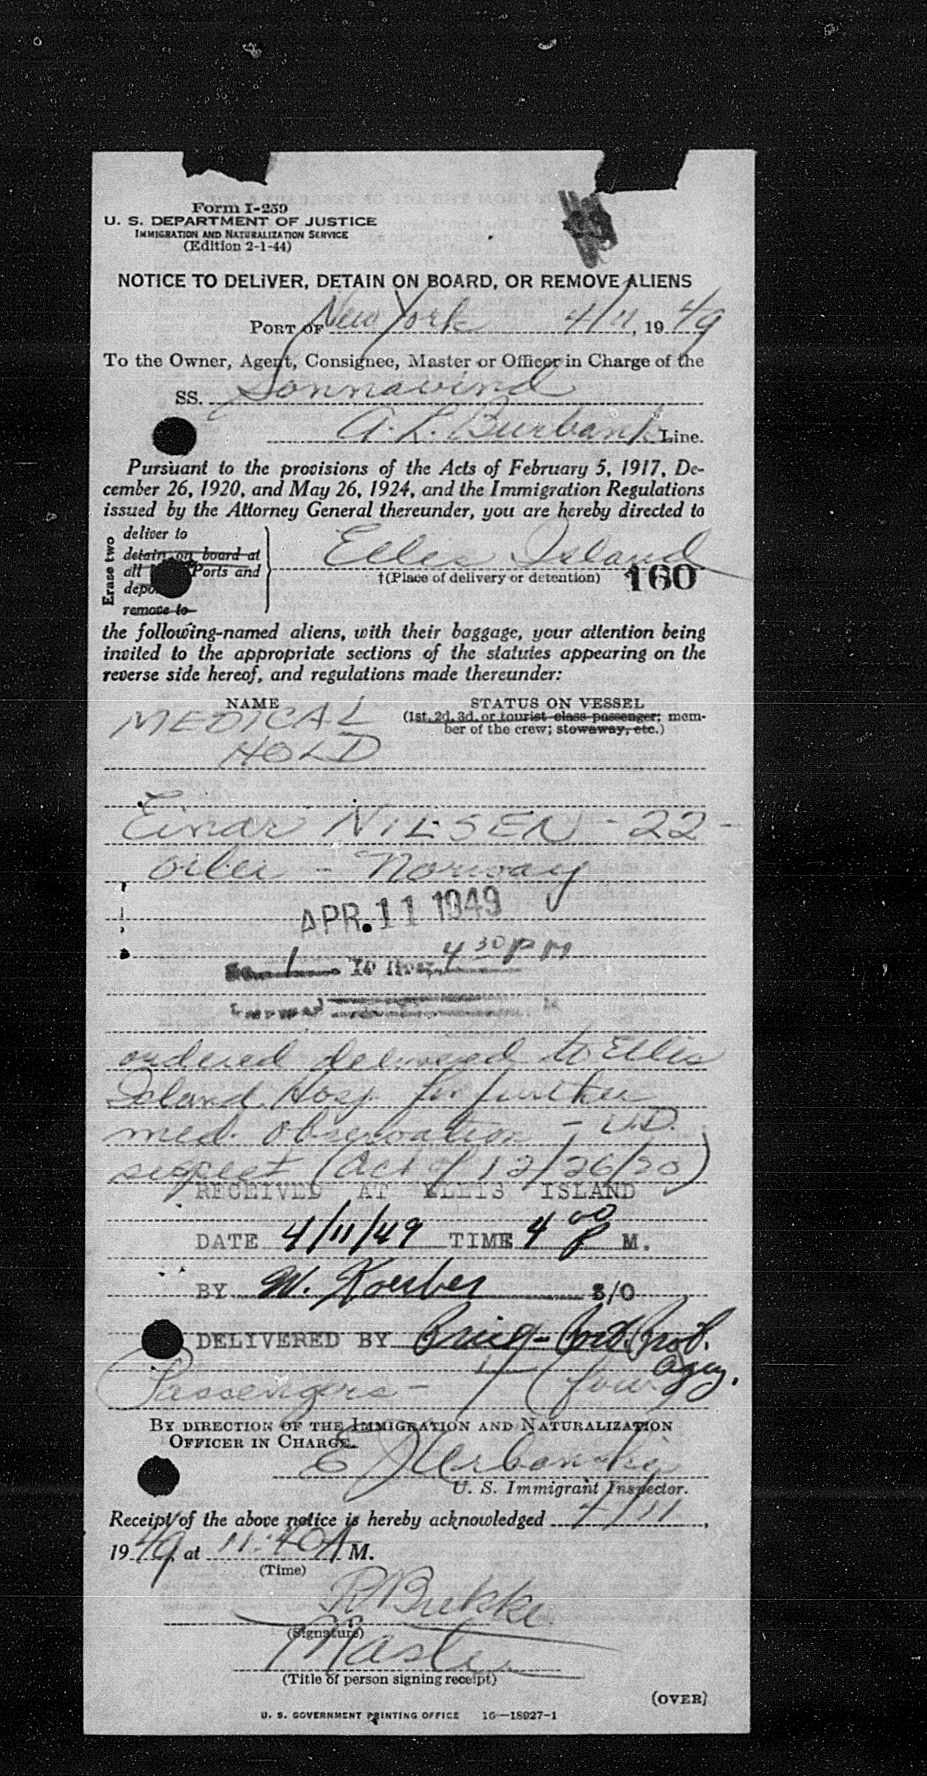 Form I-259
U. S. DEPARTMENT OF JUSTICE
IMMIGRATION AND NATURALIZATION SERVICE
(Edition 2-1-44)
NOTICE TO DELIVER, DETAIN ON BOARD, OR REMOVE ALIENS
PORT OF New York 4/11, 1949
To the Owner, Agent, Consignee, Master or Officer in Charge of the
SS. Sonnavind
A. L. Burbank Line.
Pursuant to the provisions of the Acts of February 5, 1917, De-
cember 26, 1920, and May 26, 1924, and the Immigration Regulations
issued by the Attorney General thereunder, you are hereby directed to
Erase two
deliver to
detain on board at
all Ports and
remove to
Ellis Island
†(Place of delivery or detention) 160
the following-named aliens, with their baggage, your attention being
invited to the appropriate sections of the statutes appearing on the
reverse side hereof, and regulations made thereunder:
NAME STATUS ON VESSEL
(1st, 2d, 3d, or tourist class passenger; mem-
ber of the crew; stowaway, etc.)
MEDICAL
HOLD
Einar NILSEN - 22 -
oiler - Norway
APR. 11 1949
4 30 PM
ordered delivered to Ellis
Island Hosp for further
med. observation - V.D.
suspect (Act of 12/26/20)
RECEIVED AT ELLIS ISLAND
DATE 4/11/49 TIME 4 00 P M.
BY W. Koerber S/O
DELIVERED BY
Passengers - 
BY DIRECTION OF THE IMMIGRATION AND NATURALIZATION
OFFICER IN CHARGE.
E J Urbanski
U. S. Immigrant Inspector.
Receipt of the above notice is hereby acknowledged 4/11,
1949 at 11:40 A M.
(Time)
R Bukke
(Signature)
Master
(Title of person signing receipt)
(OVER)
U. S. GOVERNMENT PRINTING OFFICE 16—18927-1